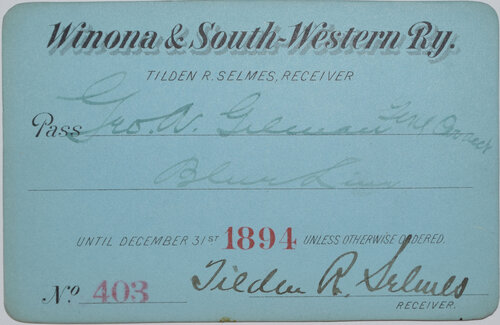 Winona & South-Western Ry.
TILDEN R. SELMES, RECEIVER
Pass Geo. W. Gilman
Blue Line
UNTIL DECEMBER 31ST 1894 UNLESS OTHERWISE ORDERED.
No 403 Tilden R. Selmes
RECEIVER.